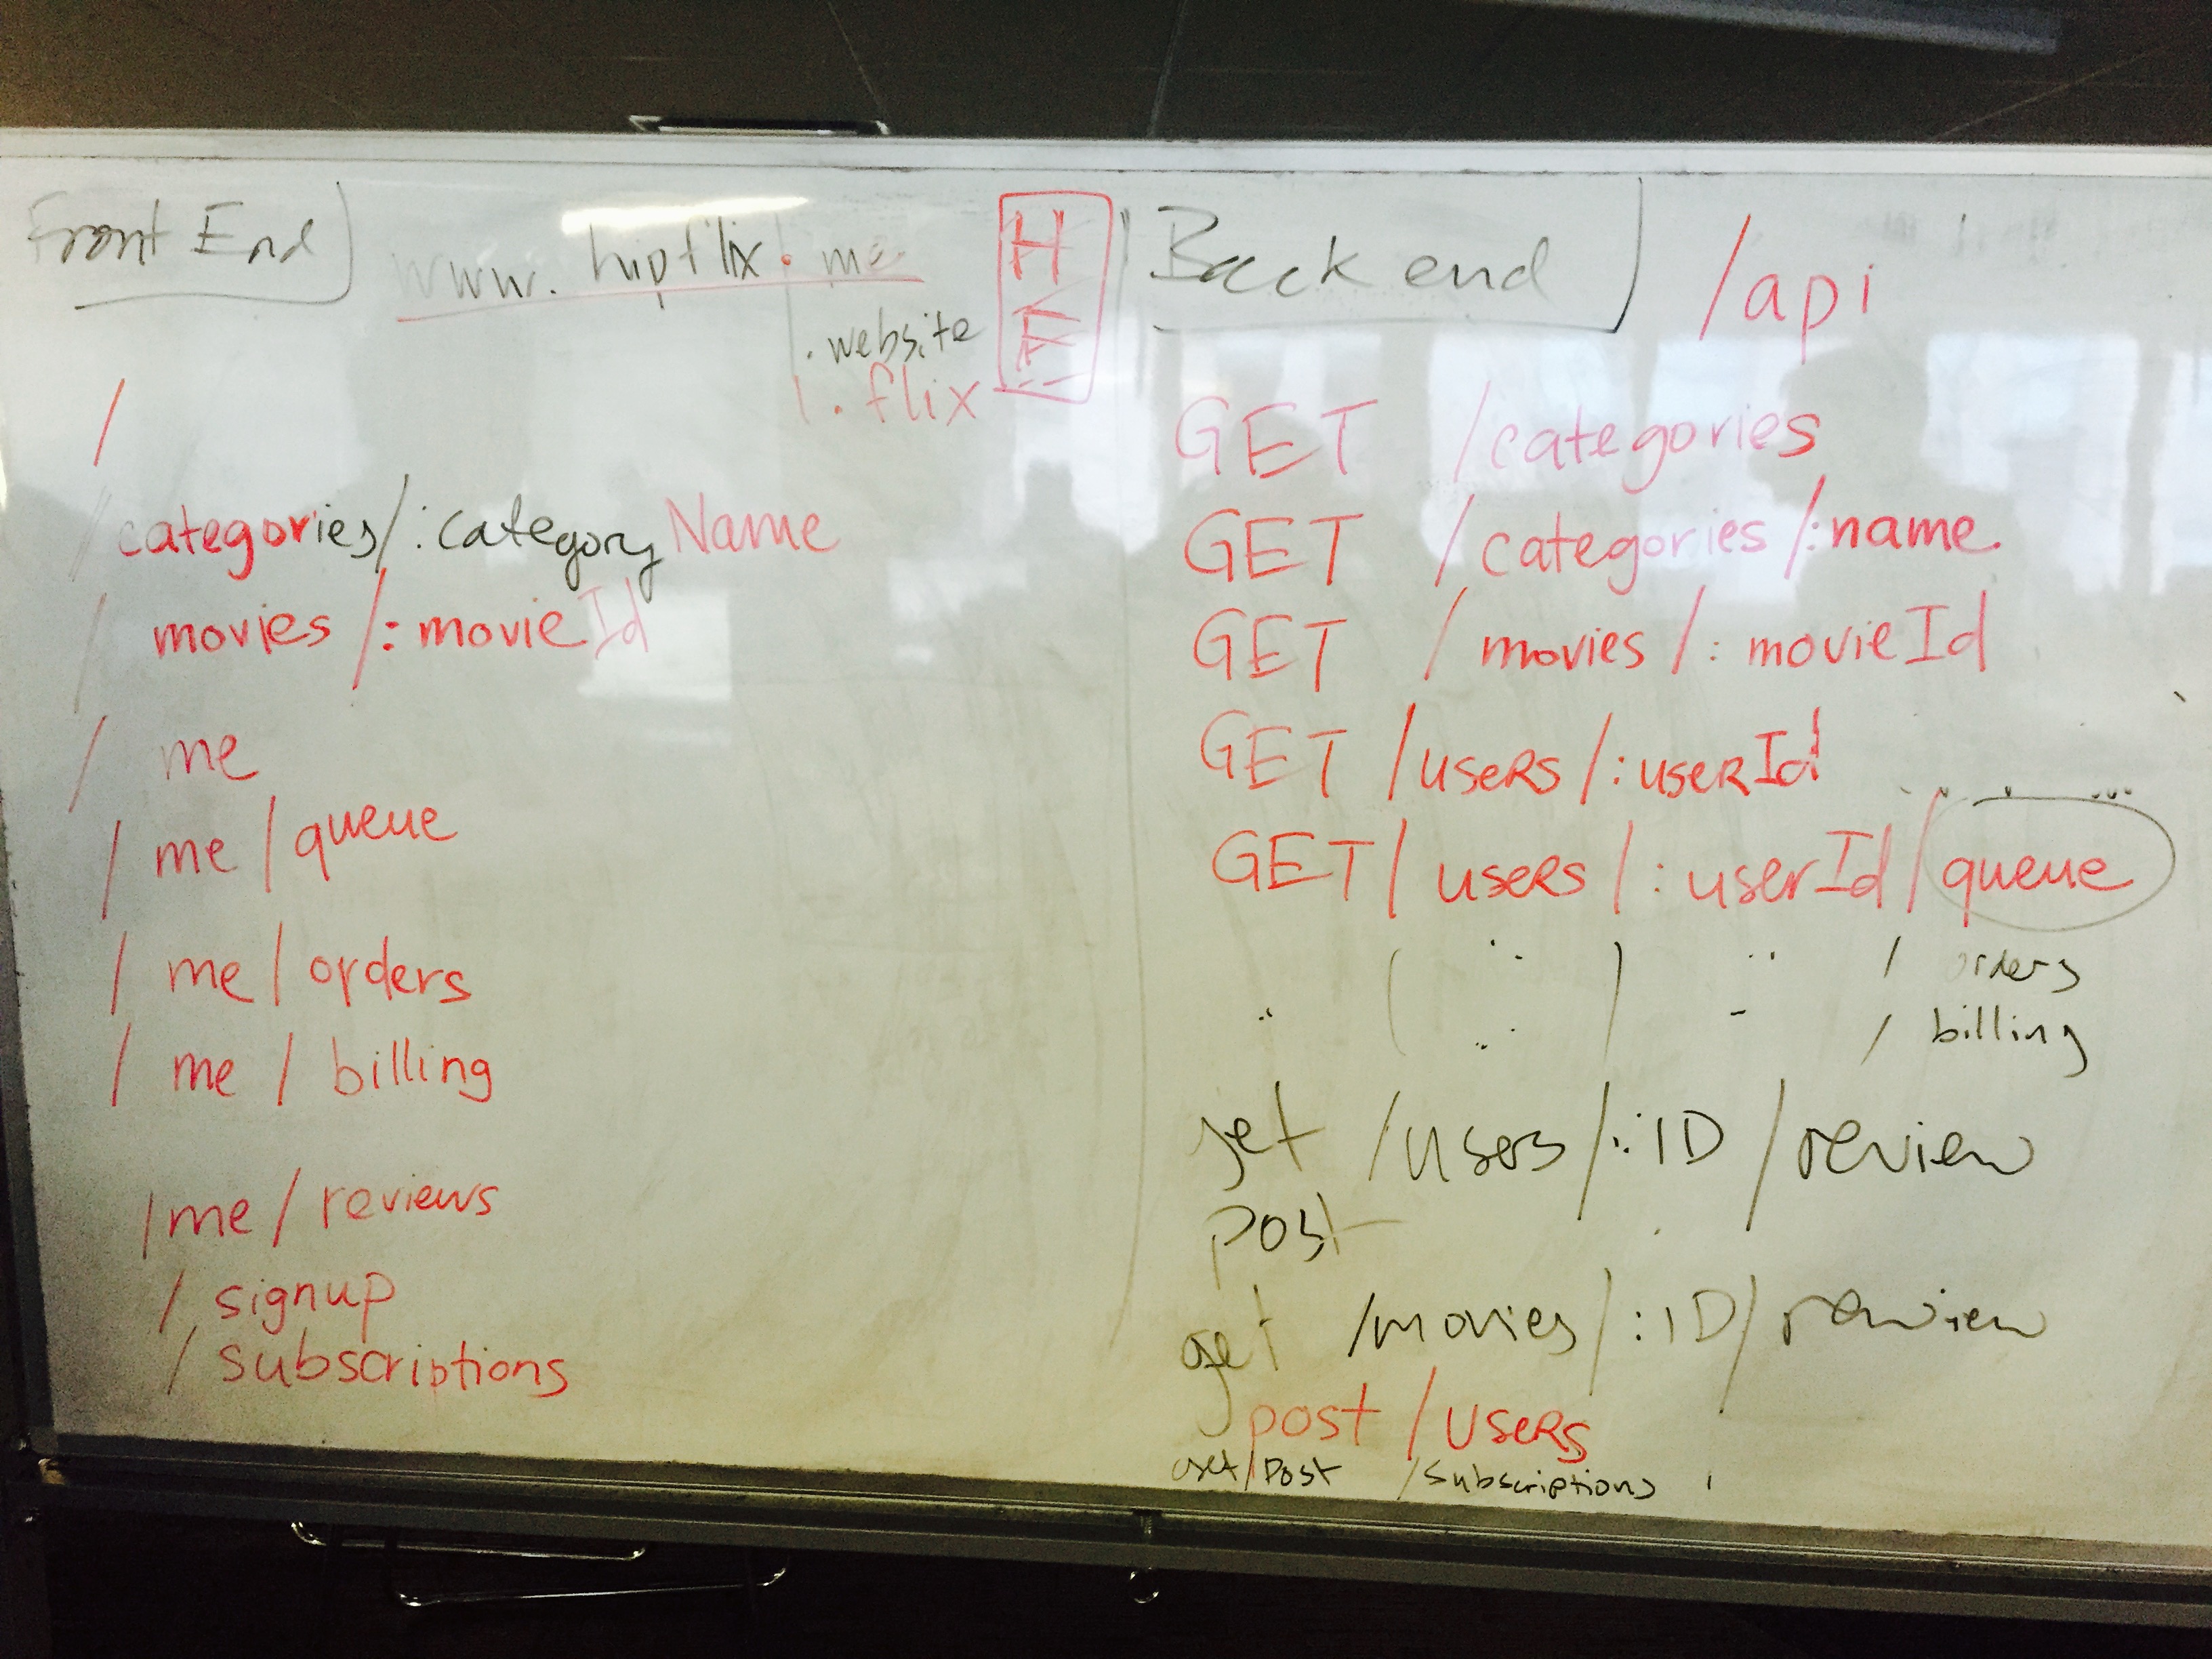 Front End
www.hipflix.me
.website
.flix
H
/
/categories/:categoryName
/movies/:movieId
/me
/me/queue
/me/orders
/me/billing
/me/reviews
/signup
/subscriptions
Back end
/api
GET /categories
GET /categories/:name
GET /movies/:movieId
GET /users/:userId
GET /users/:userId/queue
/orders
/billing
get /users/:ID/review
post
get /movies/:ID/review
post /users
Get/Post /subscriptions